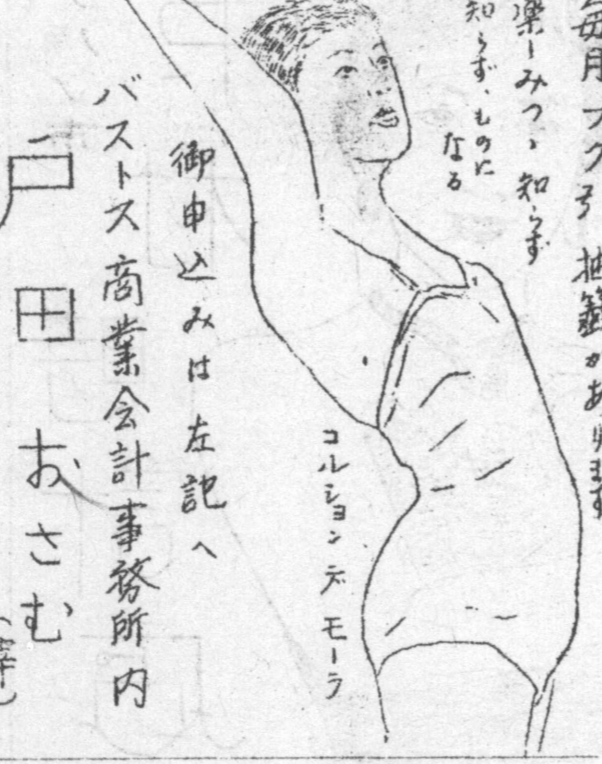 毎月フク引抽籤があります
楽しみつゝ知らず
知らず、ものに
なる
コルション デ モーラ
御申込みは左記へ
バストス商業会計事務所内
戸田おさむ